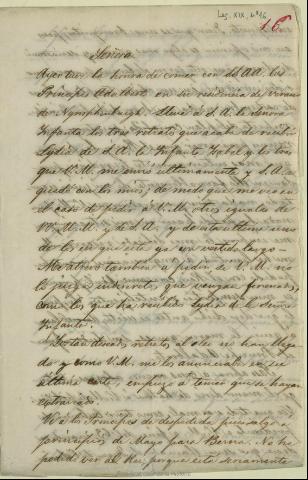 Leg. XIX, nº 16
16
Señora
Ayer tuve la honra de comer con SS.AA. los
Principes Adalberto en su residencia de verano
de Nymphenburgh. Llevé á S.A. la Señora
Infanta los tres retratos que acaba de recibir
Lydia de S.A. la Infanta Isabel y los tres
que V.M. me envió ultimamente y S.A. se
quedó con los mios; de modo que me veo en
el caso de pedir á V.M. otros iguales de
VV.M.M. y de S.A. y de esta ultima uno
de los en que esté ya con vestido largo.—
Me atrevo tambien a pedir á V.M. no
lo juzgue indiscreto que vengan firmados,
como los que ha recibido Lydia de la Señora
Infanta.
Los tan deseados retratos al oleo no han llega-
do y como V.M. me los anunciaba en su
ultima carta, empiezo a temer que se hayan
extraviado.
Vi á los Principes de despedida pues salgo a
principios de Mayo para Berna. No he
podido ver al Rei porque está seriamente